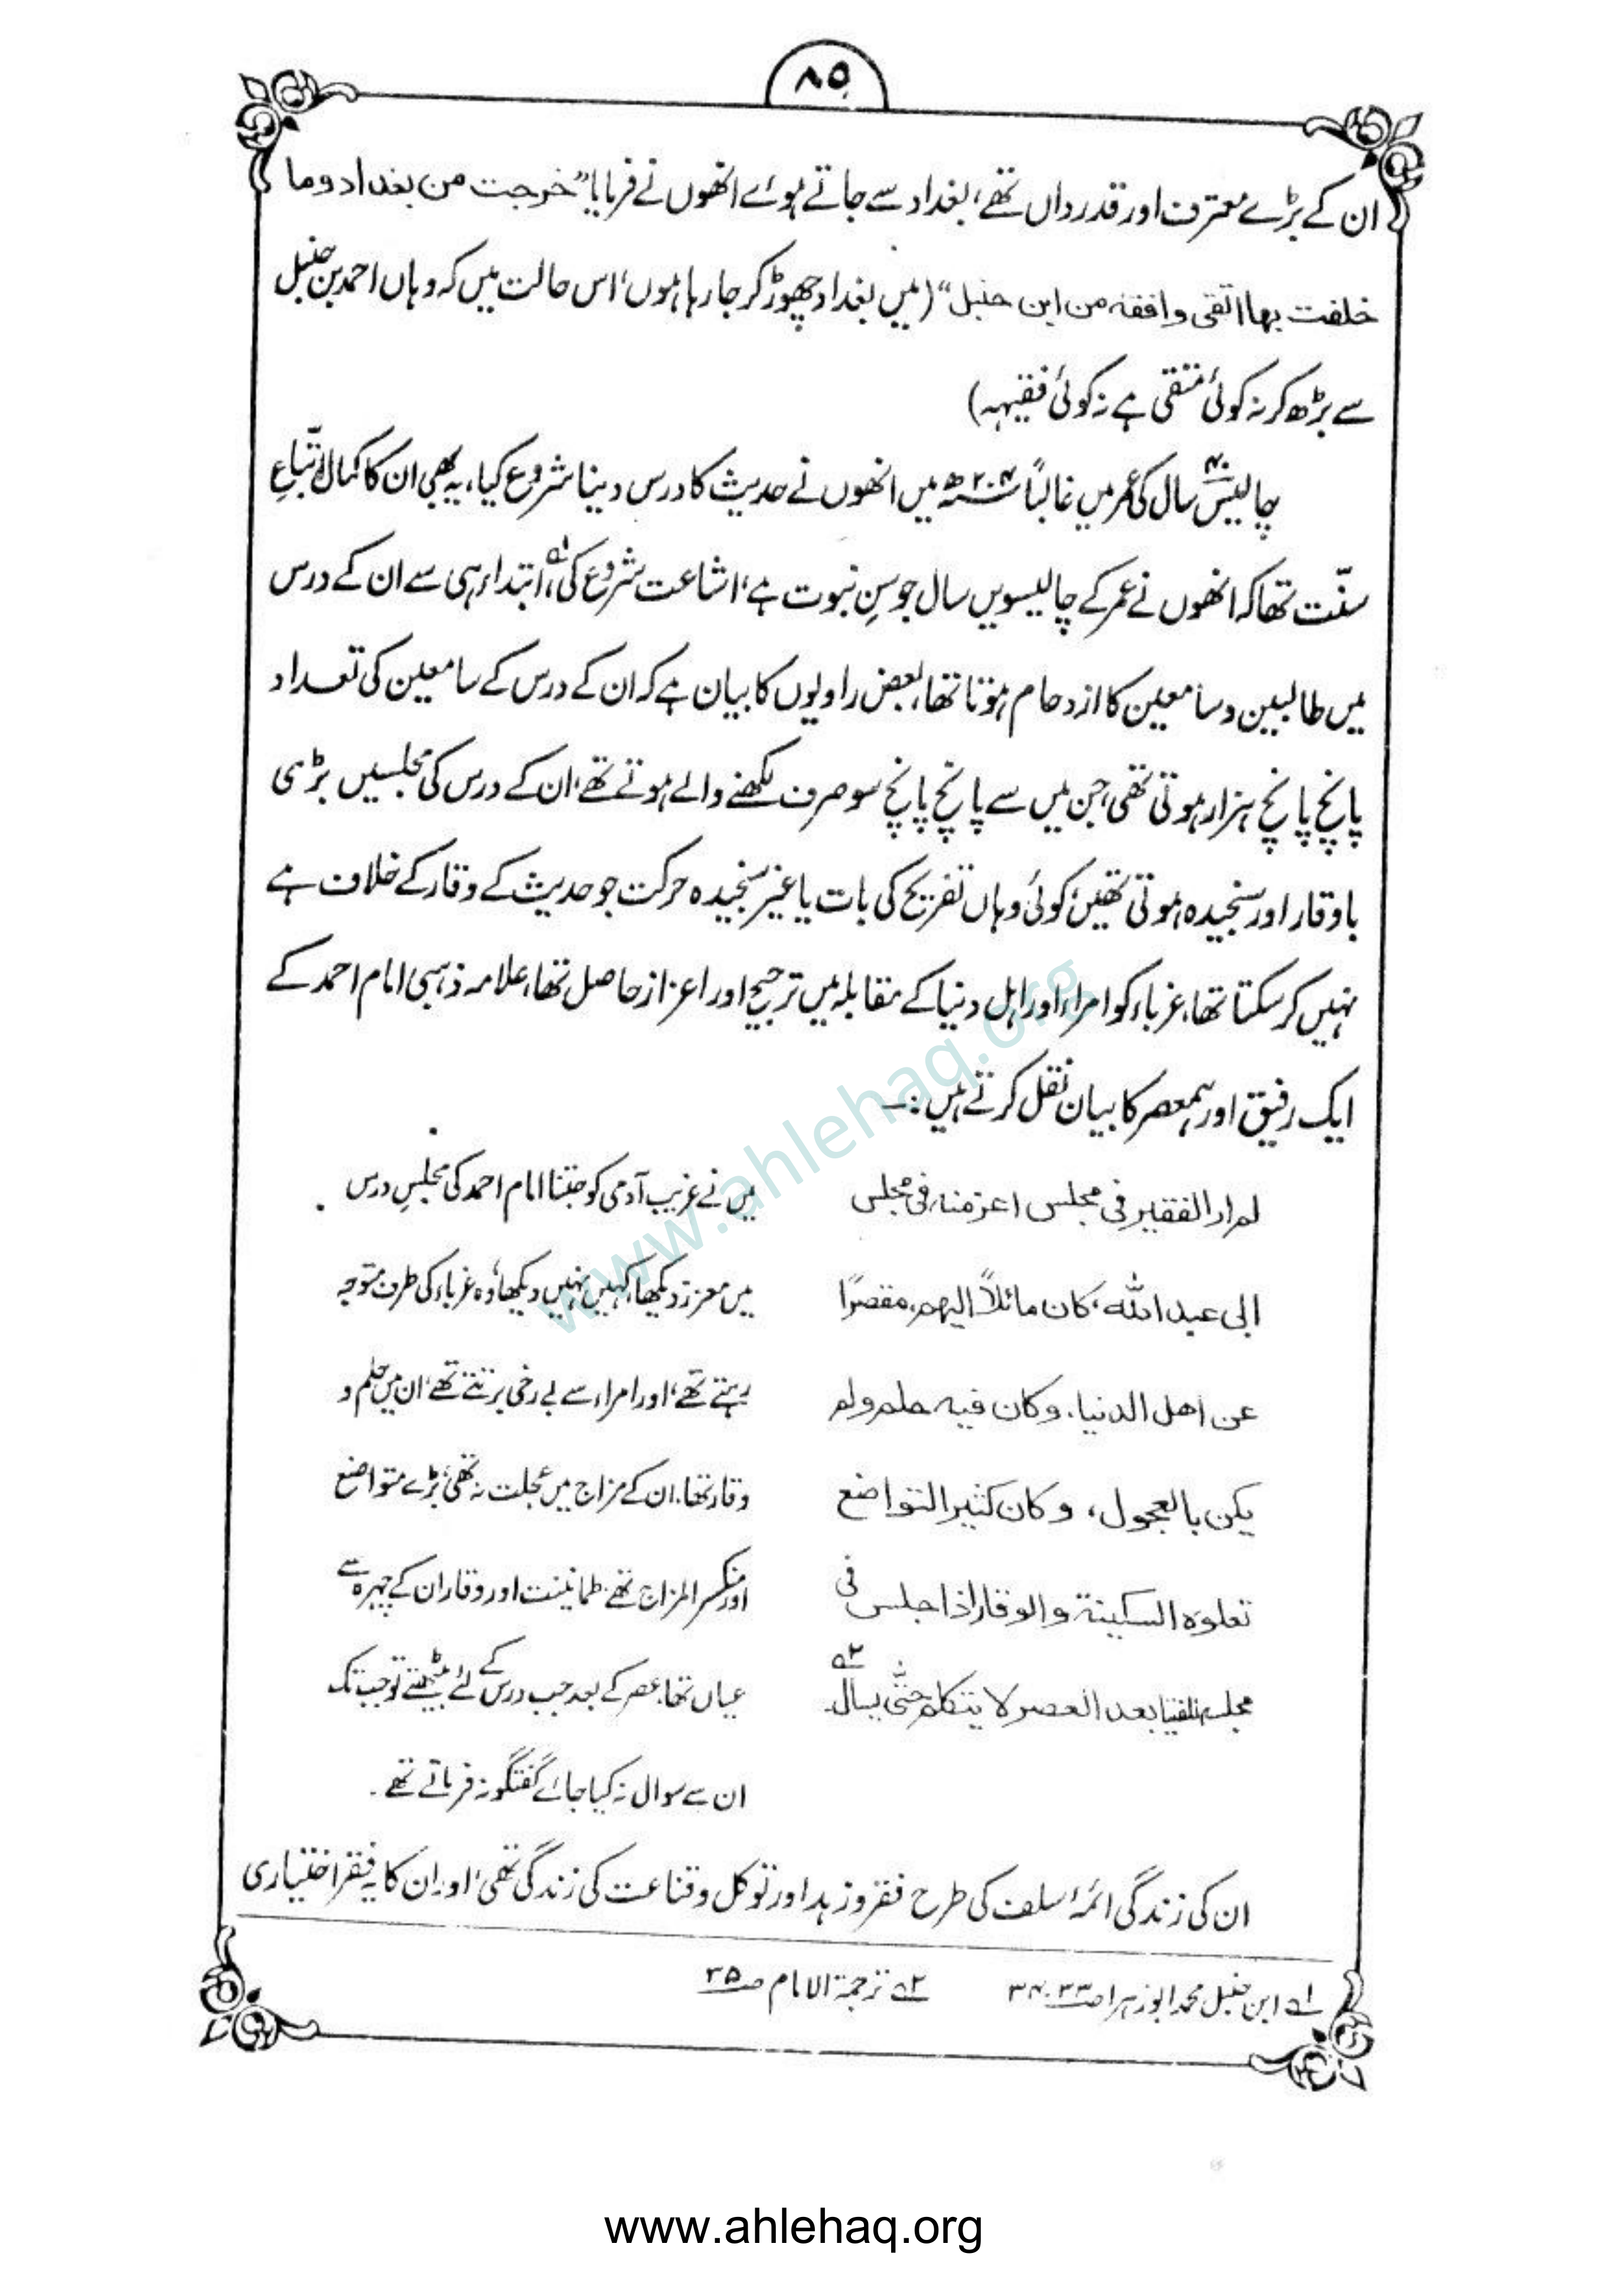 ۸۵
ان کے بڑے معترف اور قدرداں تھے، بغداد سے جاتے ہوئے انھوں نے فرمایا "خرجت من بغداد وما
خلفت بھا اتقی وافقہ من ابن حنبل" (میں بغداد چھوڑ کر جا رہا ہوں، اس حالت میں کہ وہاں احمد بن حنبل
سے بڑھ کر نہ کوئی متقی ہے نہ کوئی فقیہہ)
چالیس ۴۰ سال کی عمر میں غالباً ۲۰۴ھ میں انھوں نے حدیث کا درس دینا شروع کیا، یہ بھی ان کا کمال اتّباعِ
سنّت تھا کہ انھوں نے عمر کے چالیسویں سال جو سنِ نبوت ہے، اشاعت شروع کی ؎۱، ابتداء ہی سے ان کے درس
میں طالبین و سامعین کا ازدحام ہوتا تھا، بعض راویوں کا بیان ہے کہ ان کے درس کے سامعین کی تعداد
پانچ پانچ ہزار ہوتی تھی، جن میں سے پانچ پانچ سو صرف لکھنے والے ہوتے تھے، ان کے درس کی مجلسیں بڑی
باوقار اور سنجیدہ ہوتی تھیں، کوئی وہاں تفریح کی بات یا غیر سنجیدہ حرکت جو حدیث کے وقار کے خلاف ہے
نہیں کر سکتا تھا، غرباء کو امراء اور اہل دنیا کے مقابلہ میں ترجیح اور اعزاز حاصل تھا، علامہ ذہبی امام احمد کے
ایک رفیق اور ہمعصر کا بیان نقل کرتے ہیں :۔
لم ار الفقیر فی مجلس اعز منہ فی مجلس
ابی عبد اللہ، کان مائلاً الیھم، مقصرًا
عن اھل الدنیا، وکان فیہ حلم ولم
یکن بالعجول، وکان کثیر التواضع
تعلوہ السکینۃ والوقار اذا جلس فی
مجلسہ للفتیا بعد العصر لا یتکلم حتّٰی یسأل ؎۲
میں نے غریب آدمی کو جتنا امام احمد کی مجلسِ درس
میں معزز دیکھا، کہیں نہیں دیکھا، وہ غرباء کی طرف متوجہ
رہتے تھے، اور امراء سے بے رخی برتتے تھے، ان میں حلم و
وقار تھا، ان کے مزاج میں عجلت نہ تھی، بڑے متواضع
اور منکسر المزاج تھے، طمانینت اور وقار ان کے چہرہ سے
عیاں تھا، عصر کے بعد جب درس کے لئے بیٹھتے تو جب تک
ان سے سوال نہ کیا جائے گفتگو نہ فرماتے تھے۔
ان کی زندگی ائمۂ سلف کی طرح فقر و زہد اور توکل و قناعت کی زندگی تھی، اور ان کا یہ فقر اختیاری
؎۱ ابن حنبل محمد ابو زہرا ص۳۳،۳۴ ؎۲ ترجمۃ الامام ص۳۵
www.ahlehaq.org
www.ahlehaq.org